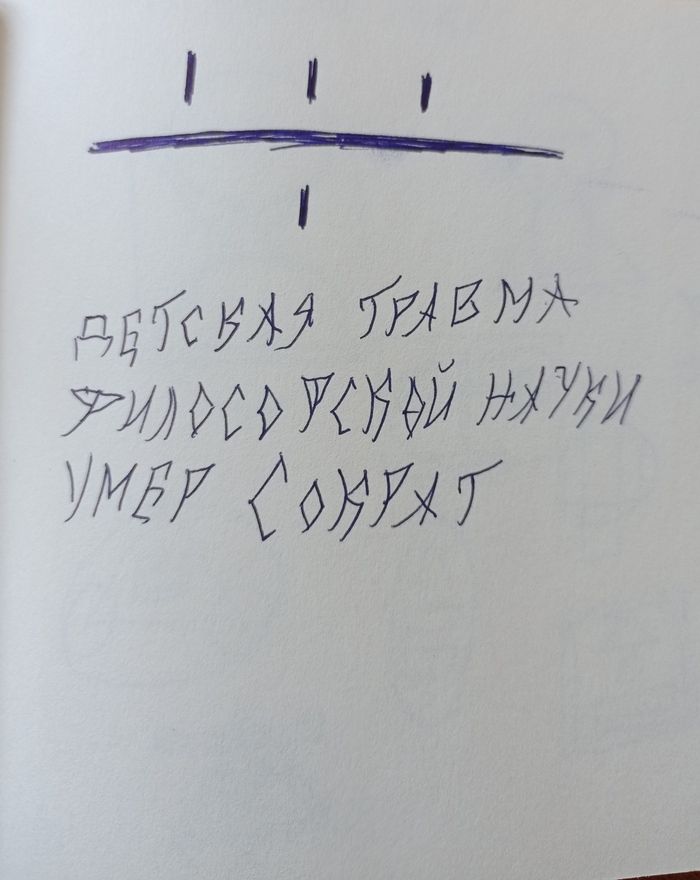 ДЕТСКАЯ ТРАВМА
ФИЛОСОФСКОЙ НАУКИ
УМЕР СОКРАТ